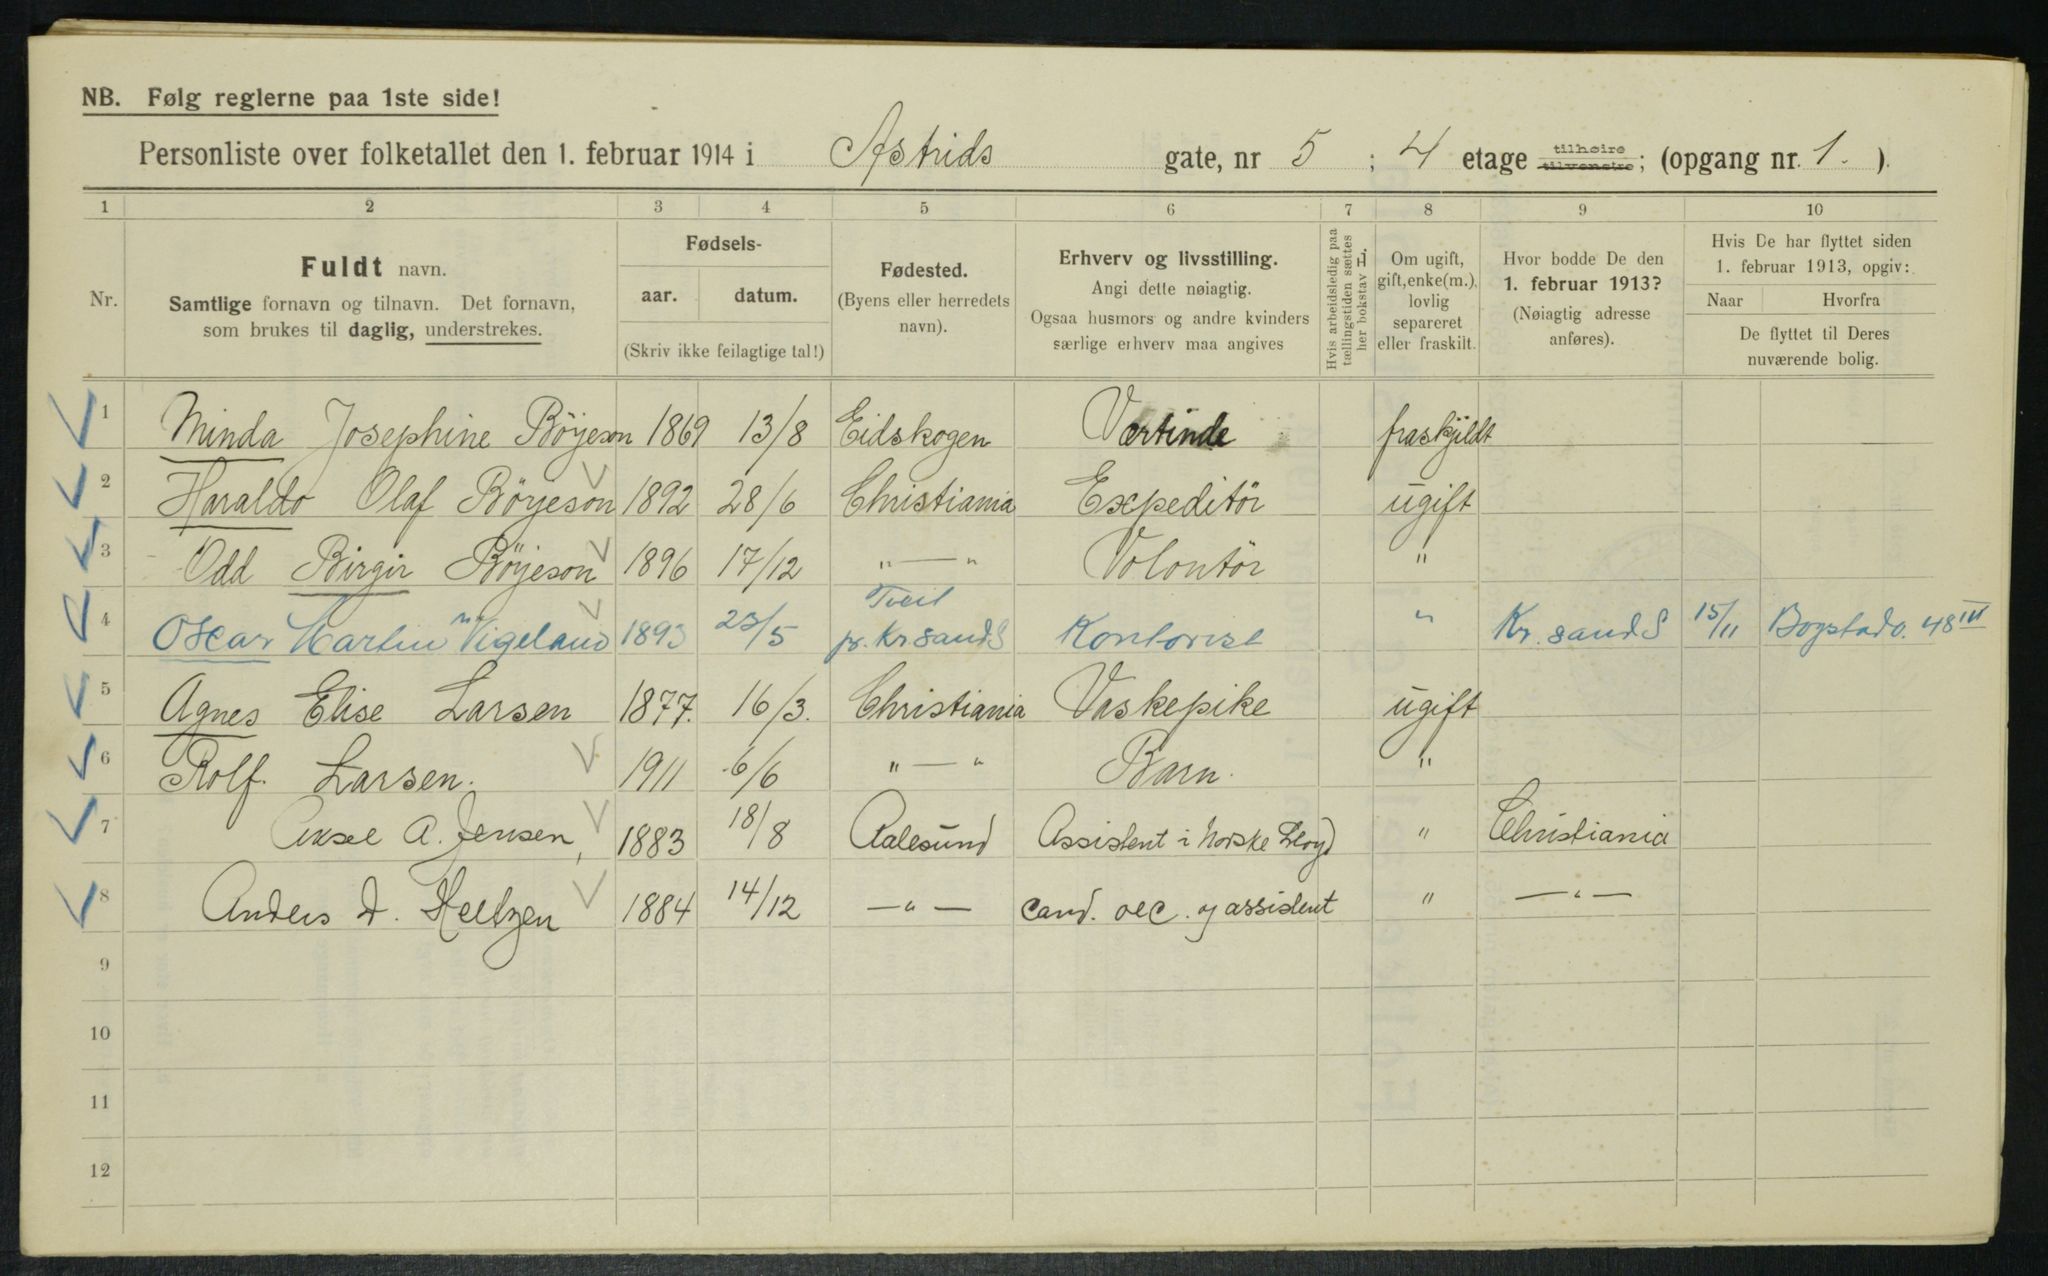 NB. Følg reglerne paa 1ste side!
Personliste over folketallet den 1. februar 1914 i Astrids gate, nr 5 ; 4 etage tilhøire tilvenstre; (opgang nr. 1. ).
1 2 3 4 5 6 7 8 9 10
Nr.
Fuldt navn.
Samtlige fornavn og tilnavn. Det fornavn,
som brukes til daglig, understrekes.
Fødsels-
aar. datum.
(Skriv ikke feilagtige tal!)
Fødested.
(Byens eller herredets
navn).
Erhverv og livsstilling.
Angi dette nøiagtig.
Ogsaa husmors og andre kvinders
særlige erhverv maa angives
Hvis arbeidsledig paa
tællingstiden sættes
her bokstav L.
Om ugift,
gift, enke(m.),
lovlig
separeret
eller fraskilt.
Hvor bodde De den
1. februar 1913?
(Nøiagtig adresse
anføres).
Hvis De har flyttet siden
1. februar 1913, opgiv:
Naar Hvorfra
De flyttet til Deres
nuværende bolig.
1 Minda Josephine Böyeson 1869 13/8 Eidskogen Værtinde fraskjildt
2 Haraldo Olaf Böryeson 1892 28/6 Christiania Expeditör ugift
3 Odd Birgir Böyeson 1896 17/12 " — " Volontör "
4 Oscar Martin Vigeland 1893 23/5 Tveit pr. Kr sand S Kontorist " Kr. sand S 15/11 Bogstadv. 48 III
5 Agnes Elise Larsen 1877. 16/3. Christiania Vaskepike ugift
6 Rolf. Larsen. 1911 6/6 " — " Barn. "
7 Aksel A. Jensen, 1883 18/8 Aalesund Assistent i Norske Lloyd " Christiania
8 Anders D. Heltzen 1884 14/12 — " — cand. oec. og assistent " — " —
9
10
11
12